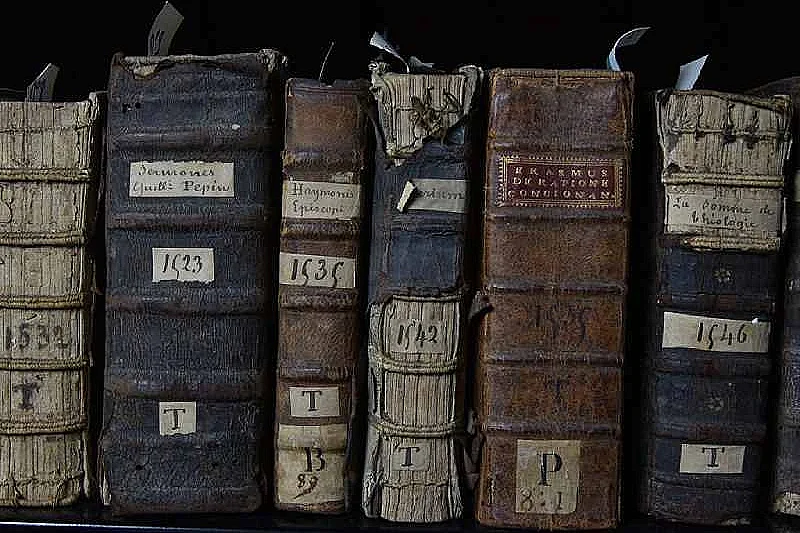 1532
T
Sermones
Guill: Pepin
1523
T
Haymonis
Episcopi
1535
T
B
89
1542
T
ERASMUS
DE RATIONE
CONCIONAN
T
P
8:1
La somme de
theologie
1546
T